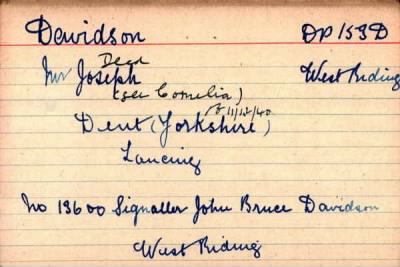 Davidson DP 153D
Decd
Mr Joseph West Riding
(see Cornelia)
11/12/40
Dent (Yorkshire)
Lancing
No 13600 Signaller John Bruce Davidson
West Riding